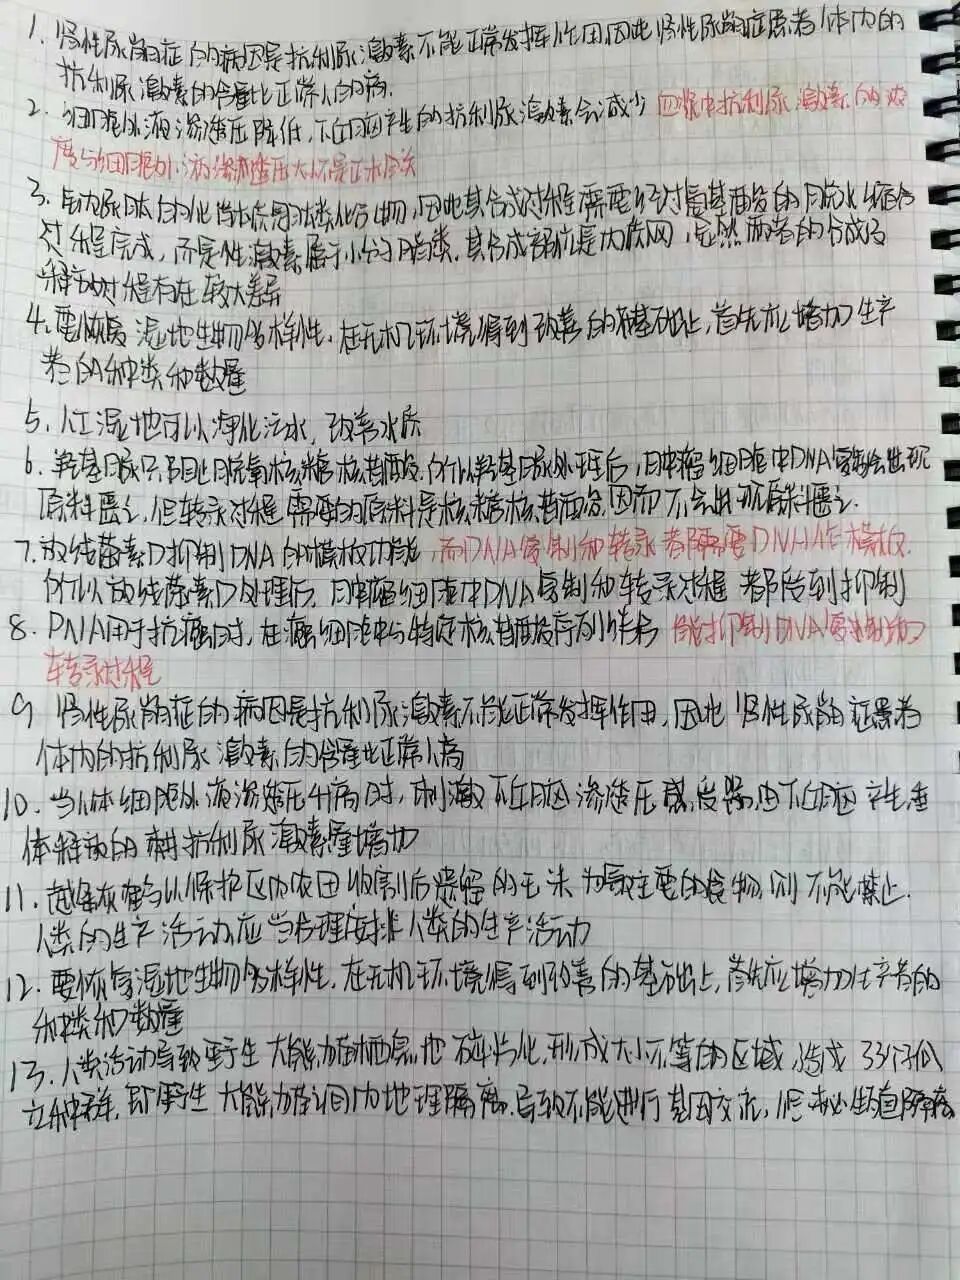 1. 肾性尿崩症的病因是抗利尿激素不能正常发挥作用因此肾性尿崩症患者体内的
抗利尿激素的含量比正常人的高.
2. 细胞外液渗透压降低，下丘脑产生的抗利尿激素会减少 血浆中抗利尿激素的浓
度与细胞外液渗透压大小呈正相关
3. 的化学本质是肽类化合物，因此其合成过程需要经过氨基酸的脱水缩合
过程完成，而是性激素属于小分子脂类. 其合成部位是内质网，显然两者的合成及
释放过程存在较大差异
4. 要恢复湿地生物多样性，在无机环境得到改善的基础上，首先应增加生产
者的种类和数量
5. 人工湿地可以净化污水，改善水质
6. 羟基脲只阻止脱氧核糖核苷酸 所以羟基脲处理后，肿瘤细胞中DNA复制会出现
原料匮乏，但转录过程需要的原料是核糖核苷酸，因而不会出现原料匮乏.
7. 放线菌素D抑制DNA的模板功能，而DNA复制和转录都需要DNA作模板.
所以放线菌素D处理后，肿瘤细胞中DNA复制和转录过程都受到抑制
8. PNA用于抗癌时，在癌细胞中与特定核苷酸序列结合 能抑制DNA复制和
转录过程
9 肾性尿崩症的病因是抗利尿激素不能正常发挥作用，因此肾性尿崩症患者
体内的抗利尿激素的含量比正常人高
10. 当人体细胞外液渗透压升高时，刺激下丘脑渗透压感受器，由下丘脑产生，垂
体释放的抗利尿激素量增加
11. 越冬灰鹤以保护区内农田收割后遗留的玉米为最主要的食物，则不能禁止
人类的生产活动，应当合理安排人类的生产活动
12. 要恢复湿地生物多样性，在无机环境得到改善的基础上，首先应增加生产者的
种类和数量
13. 人类活动导致野生大熊猫栖息地破碎化，形成大小不等的区域，造成33个孤
立种群，即野生大熊猫之间因为地理隔离，导致不能进行基因交流，但未必生殖隔离